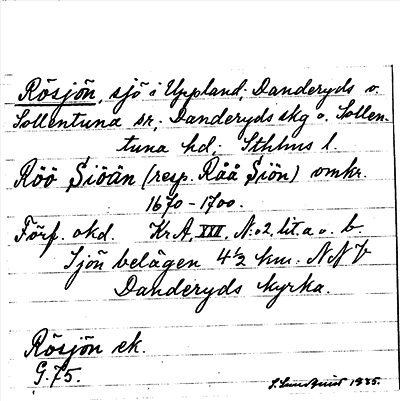 Rösjön, sjö i Uppland; Danderyds o.
Sollentuna sr; Danderyds skg o. Sollen-
tuna hd; Sthlms l.
Röö Siöän (resp. Råå Siön) omkr.
1670-1700.
Förf. okd. Kr. A, XXX, N:o 2, lit. a o. b.
Sjön belägen 4½ km. NNV
Danderyds kyrka.
Rösjön ek.
G. 75.
S. Lundqvist 1935.